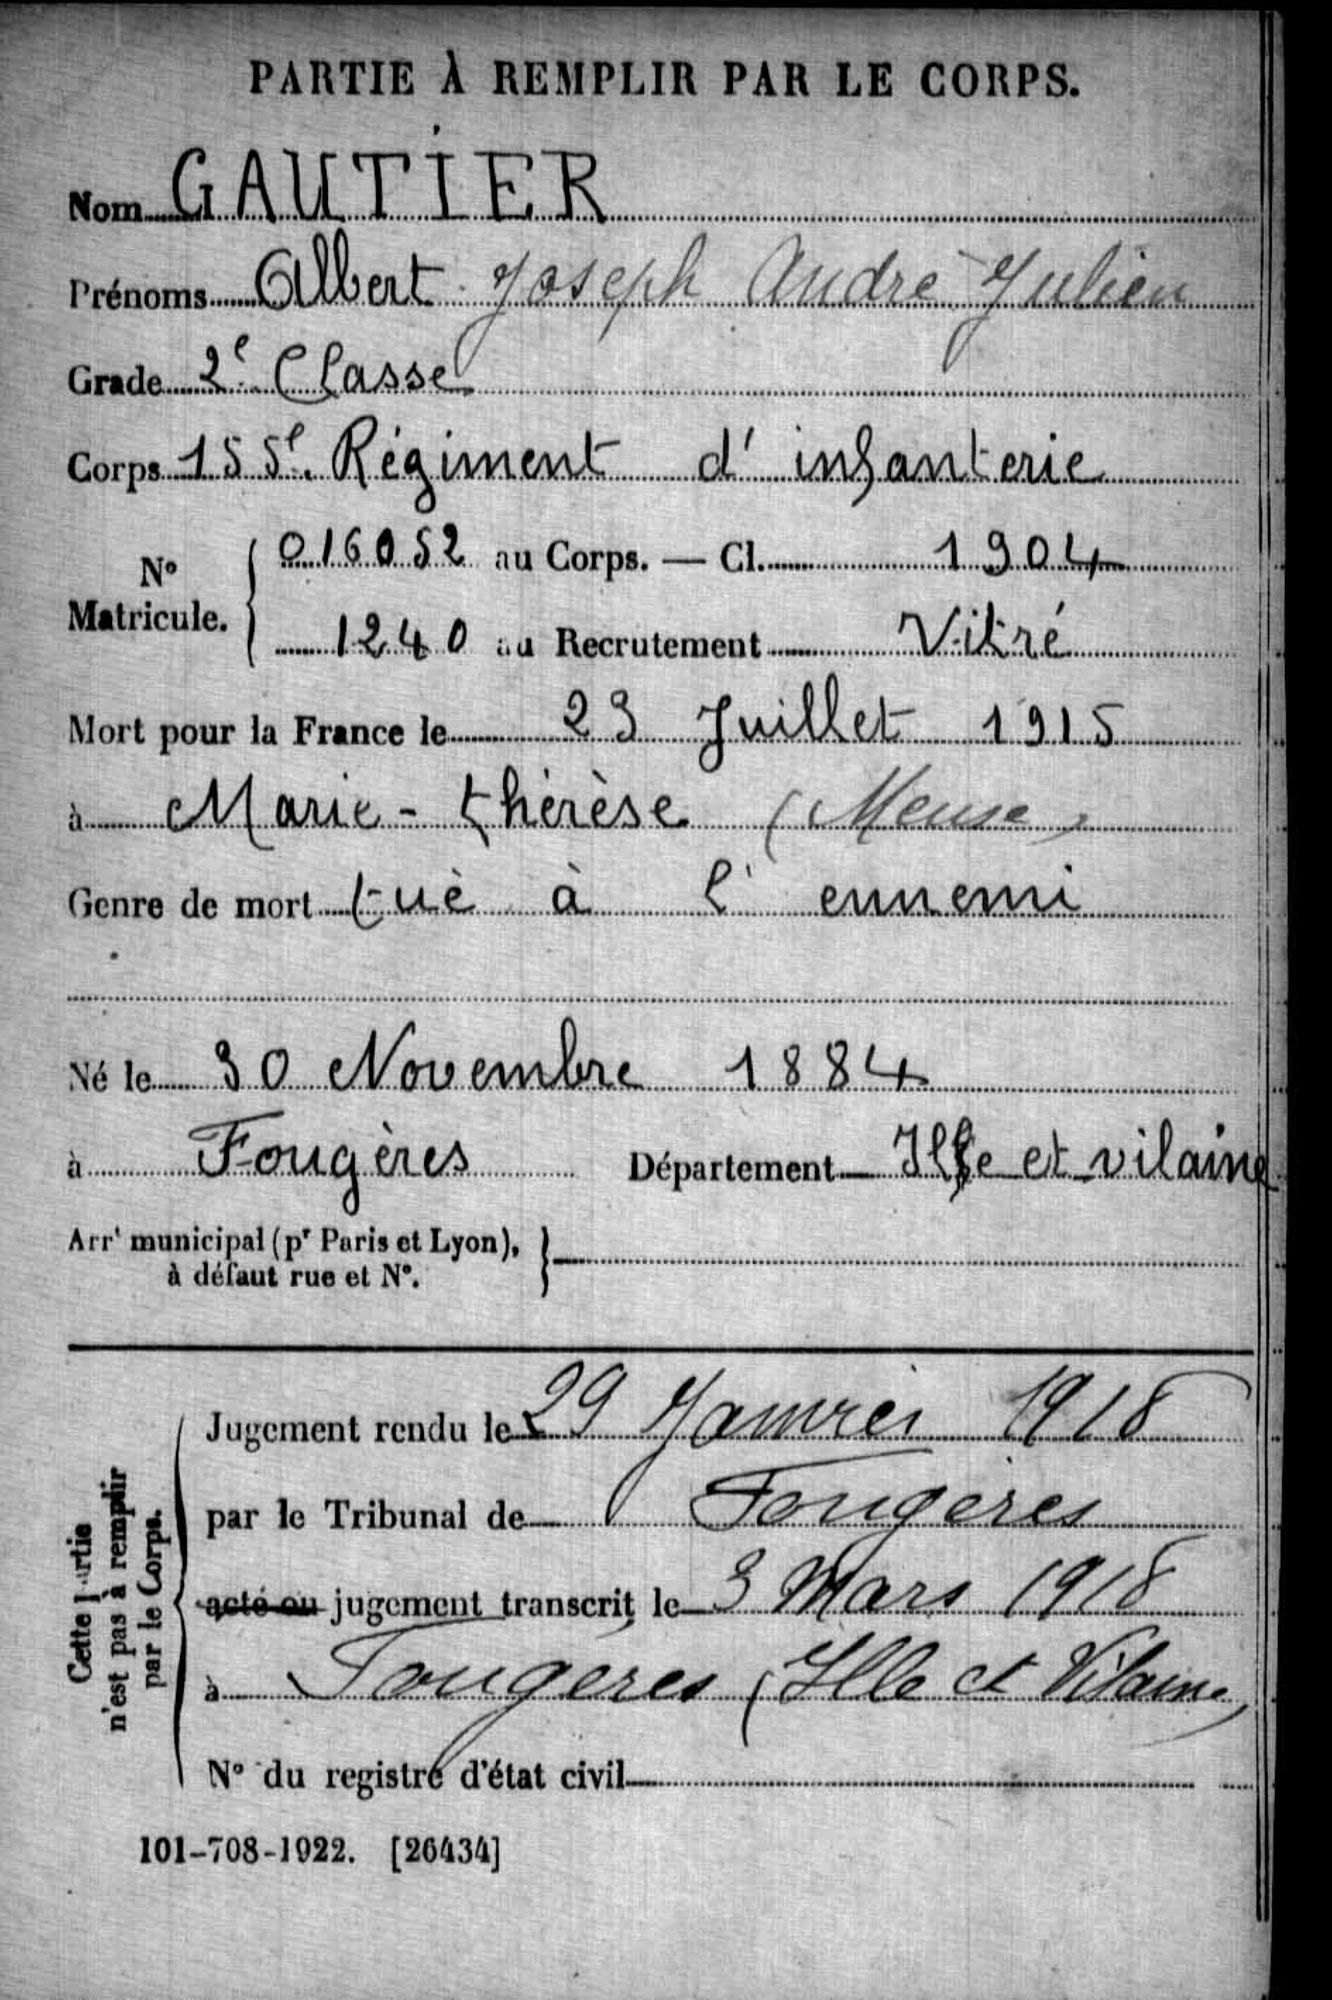 PARTIE À REMPLIR PAR LE CORPS.
Nom GAUTIER
Prénoms Albert Joseph André Julien
Grade 2e Classe
Corps 155e Régiment d' infanterie
No Matricule. 016052 au Corps. — Cl. 1904
1240 au Recrutement Vitré
Mort pour la France le 23 Juillet 1915
à Marie-thérèse (Meuse)
Genre de mort tué à l' ennemi
Né le 30 Novembre 1884
à Fougères Département Ille et vilaine
Arrt municipal (pr Paris et Lyon),
à défaut rue et No.
Cette partie
n'est pas à remplir
par le Corps.
Jugement rendu le 29 Janvier 1918
par le Tribunal de Fougères
acte ou jugement transcrit le 3 Mars 1918
à Fougères (Ille et Vilaine)
No du registre d'état civil
101-708-1922. [26434]